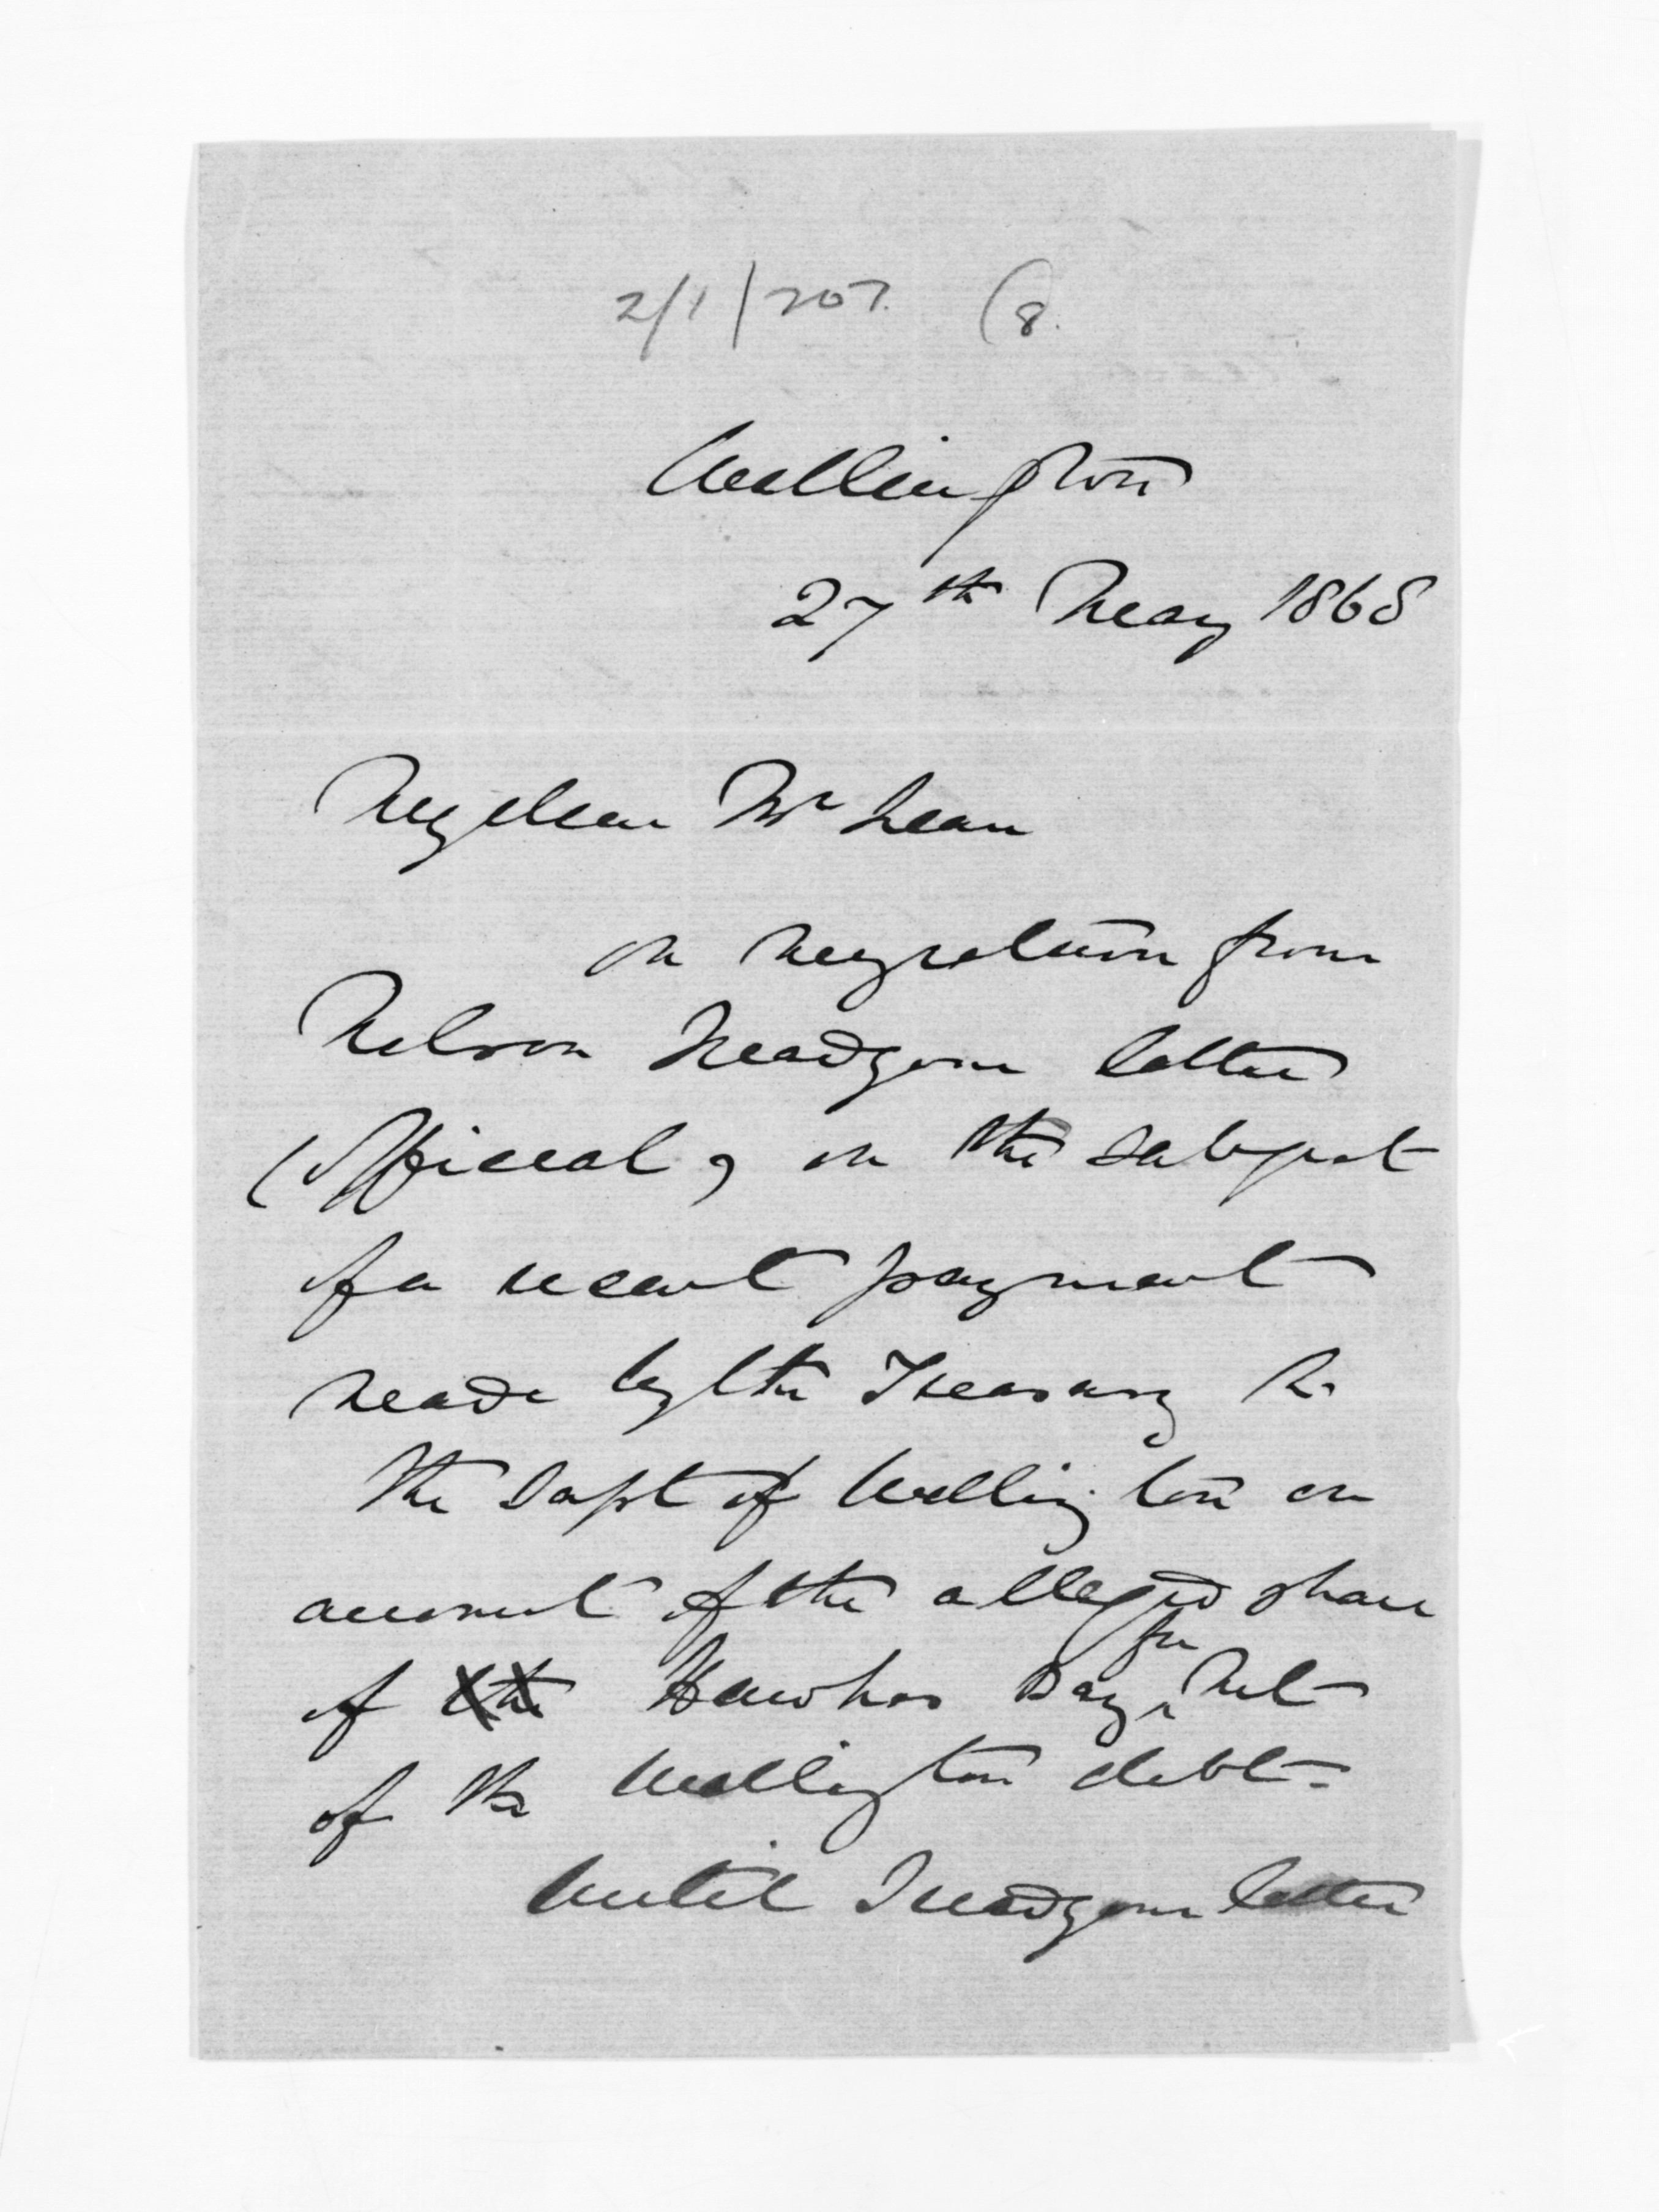 2/1/207. (8.
Wellington
27th May 1868
My dear Mr Lean
On my return from
Nelson I read your letter
(Official, on the subject
of a recent payment
made by the Treasury to
the Supt of Wellington on
account of the alleged share
of the Hawkes Bay
of the Wellington debt.
Until I read your letter